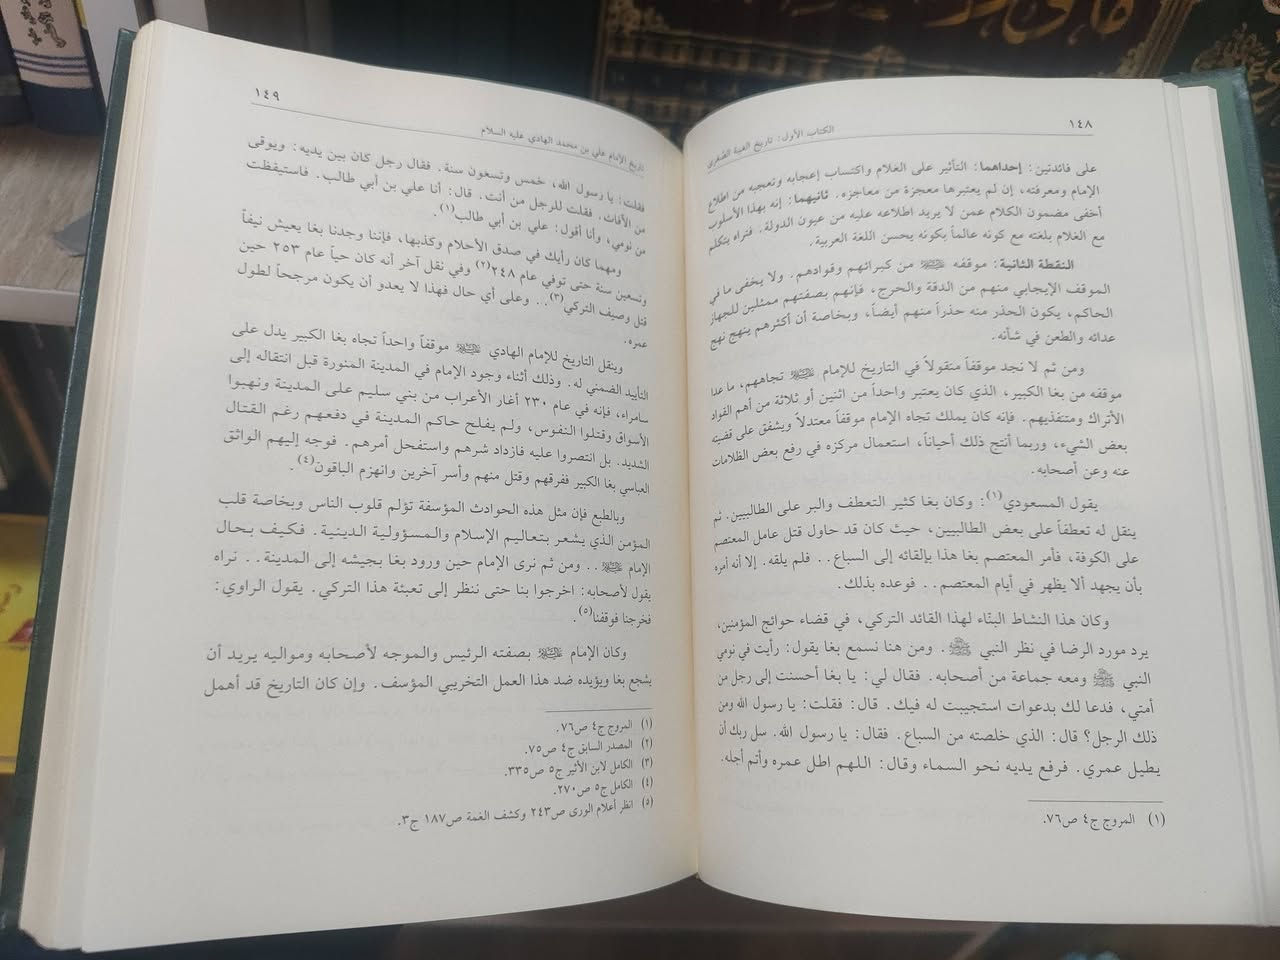 ١٤٨
الكتاب الأول: تاريخ الغيبة الصغرى
على فائدتين: إحداهما: التأثير على الغلام واكتساب إعجابه وتعجبه من اطلاع
الإمام ومعرفته، إن لم يعتبرها معجزة من معاجزه. ثانيهما: إنه بهذا الأسلوب
أخفى مضمون الكلام عمن لا يريد اطلاعه عليه من عيون الدولة. فتراه يتكلم
مع الغلام بلغته مع كونه عالماً بكونه يحسن اللغة العربية.
النقطة الثانية: موقفه من كبرائهم وقوادهم. ولا يخفى ما في
الموقف الإيجابي منهم من الدقة والحرج، فإنهم بصفتهم ممثلين للجهاز
الحاكم، يكون الحذر منه حذراً منهم أيضاً، وبخاصة أن أكثرهم ينهج نهج
عدائه والطعن في شأنه.
ومن ثم لا نجد موقفاً منقولاً في التاريخ للإمام تجاههم، ما عدا
موقفه من بغا الكبير، الذي كان يعتبر واحداً من اثنين أو ثلاثة من أهم القواد
الأتراك ومتنفذيهم. فإنه كان يملك تجاه الإمام موقفاً معتدلاً ويشفق على قضيته
بعض الشيء، وربما أنتج ذلك أحياناً، استعمال مركزه في رفع بعض الظلامات
عنه وعن أصحابه.
يقول المسعودي(١): وكان بغا كثير التعطف والبر على الطالبيين. ثم
ينقل له تعطفاً على بعض الطالبيين، حيث كان قد حاول قتل عامل المعتصم
على الكوفة، فأمر المعتصم بغا هذا بإلقائه إلى السباع.. فلم يلقه. إلا أنه أمره
بأن يجهد ألا يظهر في أيام المعتصم.. فوعده بذلك.
وكان هذا النشاط البنّاء لهذا القائد التركي، في قضاء حوائج المؤمنين،
يرد مورد الرضا في نظر النبي ﷺ. ومن هنا نسمع بغا يقول: رأيت في نومي
النبي ﷺ ومعه جماعة من أصحابه. فقال لي: يا بغا أحسنت إلى رجل من
أمتي، فدعا لك بدعوات استجيبت له فيك. قال: فقلت: يا رسول الله ومن
ذلك الرجل؟ قال: الذي خلصته من السباع. فقال: يا رسول الله. سل ربك أن
يطيل عمري. فرفع يديه نحو السماء وقال: اللهم اطل عمره وأتم أجله.
(١) المروج ج٤ ص٧٦.
١٤٩
تاريخ الإمام علي بن محمد الهادي عليه السلام
فقلت: يا رسول الله، خمس وتسعون سنة. فقال رجل كان بين يديه: ويوقى
من الآفات. فقلت للرجل من أنت. قال: أنا علي بن أبي طالب. فاستيقظت
من نومي، وأنا أقول: علي بن أبي طالب(١).
ومهما كان رأيك في صدق الأحلام وكذبها، فإننا وجدنا بغا يعيش نيفاً
وتسعين سنة حتى توفي عام ٢٤٨(٢) وفي نقل آخر أنه كان حياً عام ٢٥٣ حين
قتل وصيف التركي(٣).. وعلى أي حال فهذا لا يعدو أن يكون مرجحاً لطول
عمره.
وينقل التاريخ للإمام الهادي موقفاً واحداً تجاه بغا الكبير يدل على
التأييد الضمني له. وذلك أثناء وجود الإمام في المدينة المنورة قبل انتقاله إلى
سامراء، فإنه في عام ٢٣٠ أغار الأعراب من بني سليم على المدينة ونهبوا
الأسواق وقتلوا النفوس، ولم يفلح حاكم المدينة في دفعهم رغم القتال
الشديد. بل انتصروا عليه فازداد شرهم واستفحل أمرهم. فوجه إليهم الواثق
العباسي بغا الكبير ففرقهم وقتل منهم وأسر آخرين وانهزم الباقون(٤).
وبالطبع فإن مثل هذه الحوادث المؤسفة تؤلم قلوب الناس وبخاصة قلب
المؤمن الذي يشعر بتعاليم الإسلام والمسؤولية الدينية. فكيف بحال
الإمام .. ومن ثم نرى الإمام حين ورود بغا بجيشه إلى المدينة.. نراه
يقول لأصحابه: اخرجوا بنا حتى ننظر إلى تعبئة هذا التركي. يقول الراوي:
فخرجنا فوقفنا(٥).
وكان الإمام بصفته الرئيس والموجه لأصحابه ومواليه يريد أن
يشجع بغا ويؤيده ضد هذا العمل التخريبي المؤسف. وإن كان التاريخ قد أهمل
(١) المروج ج٤ ص٧٦.
(٢) المصدر السابق ج٤ ص٧٥.
(٣) الكامل لابن الأثير ج٥ ص٣٣٥.
(٤) الكامل ج٥ ص٢٧٠.
(٥) انظر أعلام الورى ص٢٤٣ وكشف الغمة ص١٨٧ ج٣.